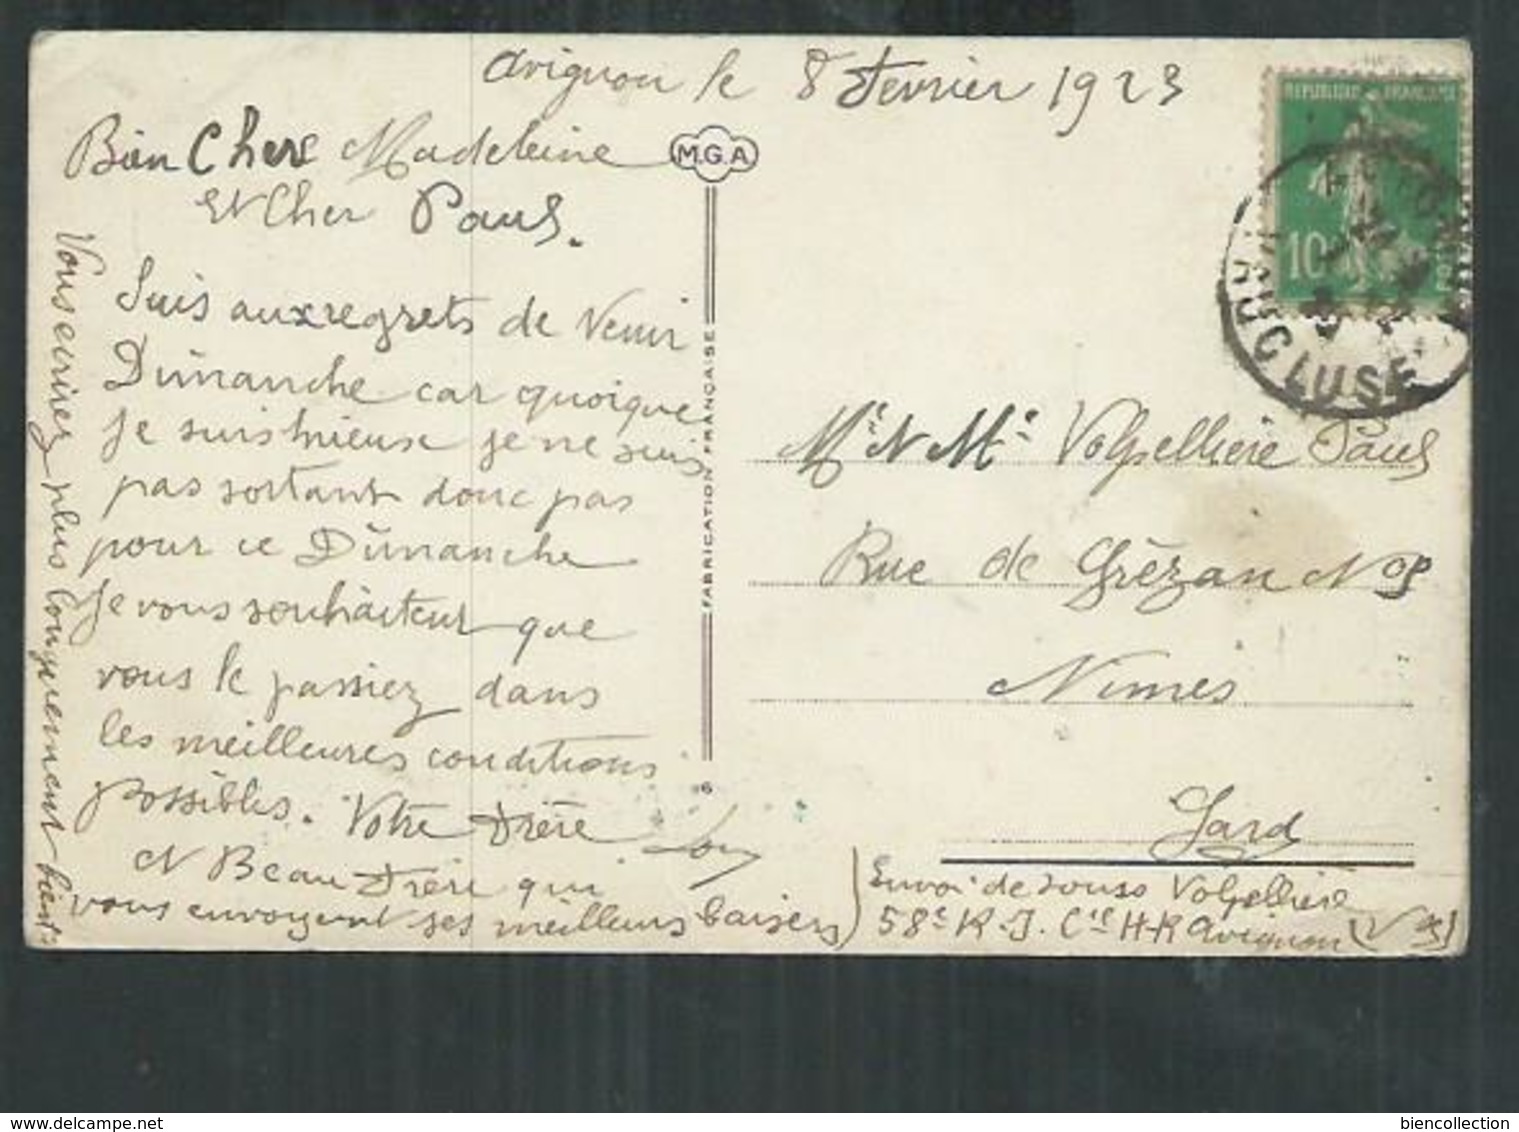 Avignon le 8 Fevrier 1923
Bien Chere Madeleine
Et Cher Paul.
Suis aux regrets de Venir
Dimanche car quoique
je suis mieux je ne suis
pas sortant donc pas
pour ce Dimanche
Je vous souhaitent que
vous le passiez dans
les meilleures conditions
possibles. Votre Frère
et Beau Frère qui
vous envoyent ses meilleurs baisers
Vous ecrirez plus longuement
M.G.A
FABRICATION FRANÇAISE
6
REPUBLIQUE FRANÇAISE
10
VAUCLUSE
Mr et Me Volpellière Paul
Rue de Grèzan No
Nimes
Gard
Envoi de Volpellière
58e R.I. Cie H-R Avignon
delcampe.net
biencollection